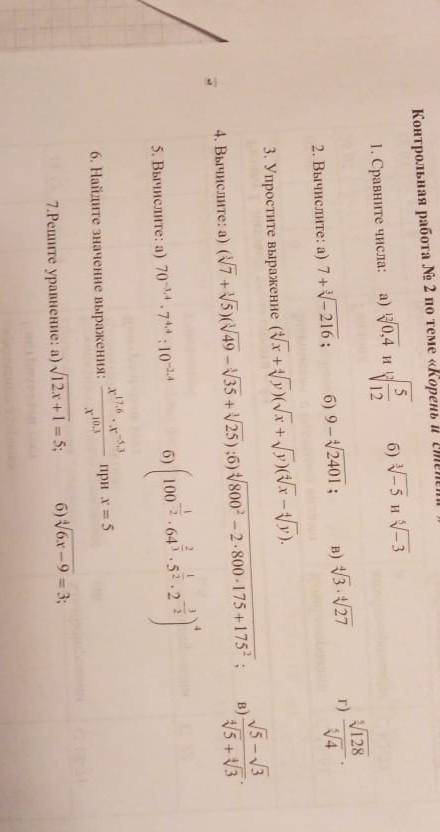 Контрольная работа № 2 по теме «Корень и степень»
1. Сравните числа: а) \sqrt[12]{0,4} и \sqrt[12]{\frac{5}{12}} б) \sqrt[3]{-5} и \sqrt[5]{-3}
2. Вычислите: а) 7 + \sqrt[3]{-216} ; б) 9 - \sqrt[4]{2401} ; в) \sqrt[4]{3} \cdot \sqrt[4]{27} г) \frac{\sqrt[5]{128}}{\sqrt[5]{4}} .
3. Упростите выражение (\sqrt[4]{x} + \sqrt[4]{y})(\sqrt{x} + \sqrt{y})(\sqrt[4]{x} - \sqrt[4]{y}).
4. Вычислите: а) (\sqrt[3]{7} + \sqrt[3]{5})(\sqrt[3]{49} - \sqrt[3]{35} + \sqrt[3]{25}) ;б) \sqrt[4]{800^2 - 2 \cdot 800 \cdot 175 + 175^2} ; в) \frac{\sqrt{5} - \sqrt{3}}{\sqrt[4]{5} + \sqrt[4]{3}} .
5. Вычислите: а) 70^{-3,4} \cdot 7^{4,4} : 10^{-2,4} б) \left( 100^{-\frac{1}{2}} \cdot 64^{\frac{2}{3}} \cdot 5^{\frac{1}{2}} \cdot 2^{-\frac{3}{2}} \right)^4
6. Найдите значение выражения: \frac{x^{17,6} \cdot x^{-5,3}}{x^{10,3}} при x = 5
7.Решите уравнение: а) \sqrt{12x + 1} = 5; б) \sqrt[4]{6x - 9} = 3;